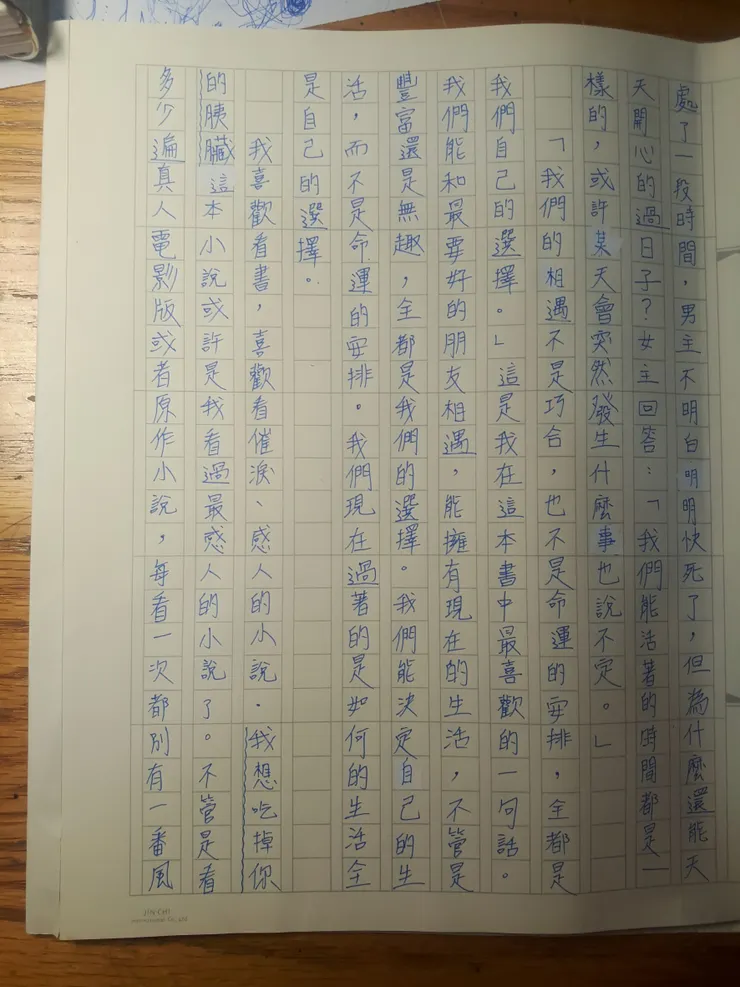 處了一段時間，男主不明白明明快死了，但為什麼還能天
天開心的過日子？女主回答：「我們能活著的時間都是一
樣的，或許某天會突然發生什麼事也說不定。」
「我們的相遇不是巧合，也不是命運的安排，全都是
我們自己的選擇。」這是我在這本書中最喜歡的一句話。
我們能和最要好的朋友相遇，能擁有現在的生活，不管是
豐富還是無趣，全都是我們的選擇。我們能決定自己的生
活，而不是命運的安排。我們現在過著的是如何的生活全
是自己的選擇。
我喜歡看書，喜歡看催淚、感人的小說．我想吃掉你
的胰臟這本小說或許是我看過最感人的小說了。不管是看
多少遍真人電影版或者原作小說，每看一次都別有一番風
JIN CHI